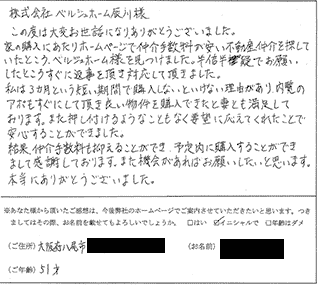 株式会社ベルジュホーム辰川様
この度は大変お世話になりありがとうございました。
家の購入にあたりホームページで仲介手数料が安い不動産仲介を探して
いたところ、ベルジュホーム様を見つけました。半信半疑でお願い
したところすぐに返事を頂き対応して頂きました。
私は3カ月という短い期間で購入しないといけない理由があり、内覧の
アポもすぐにして頂き良い物件を購入できたと妻とも満足して
おります。また押し付けるようなこともなく要望に応えてくれたことで
安心することができました。
結果、仲介手数料も抑えることができ、予定内に購入することができ
まして感謝しております。また機会があればお願いしたいと思います。
本当にありがとうございました。
※あなた様から頂いたご感想は、今後弊社のホームページでご案内させていただきたいと思います。つき
ましてはその際、お名前を載せてもよろしいでしょうか。 □はい ☑イニシャルで □年齢はダメ
(ご住所) 大阪府八尾市 (お名前)
(ご年齢) 51才